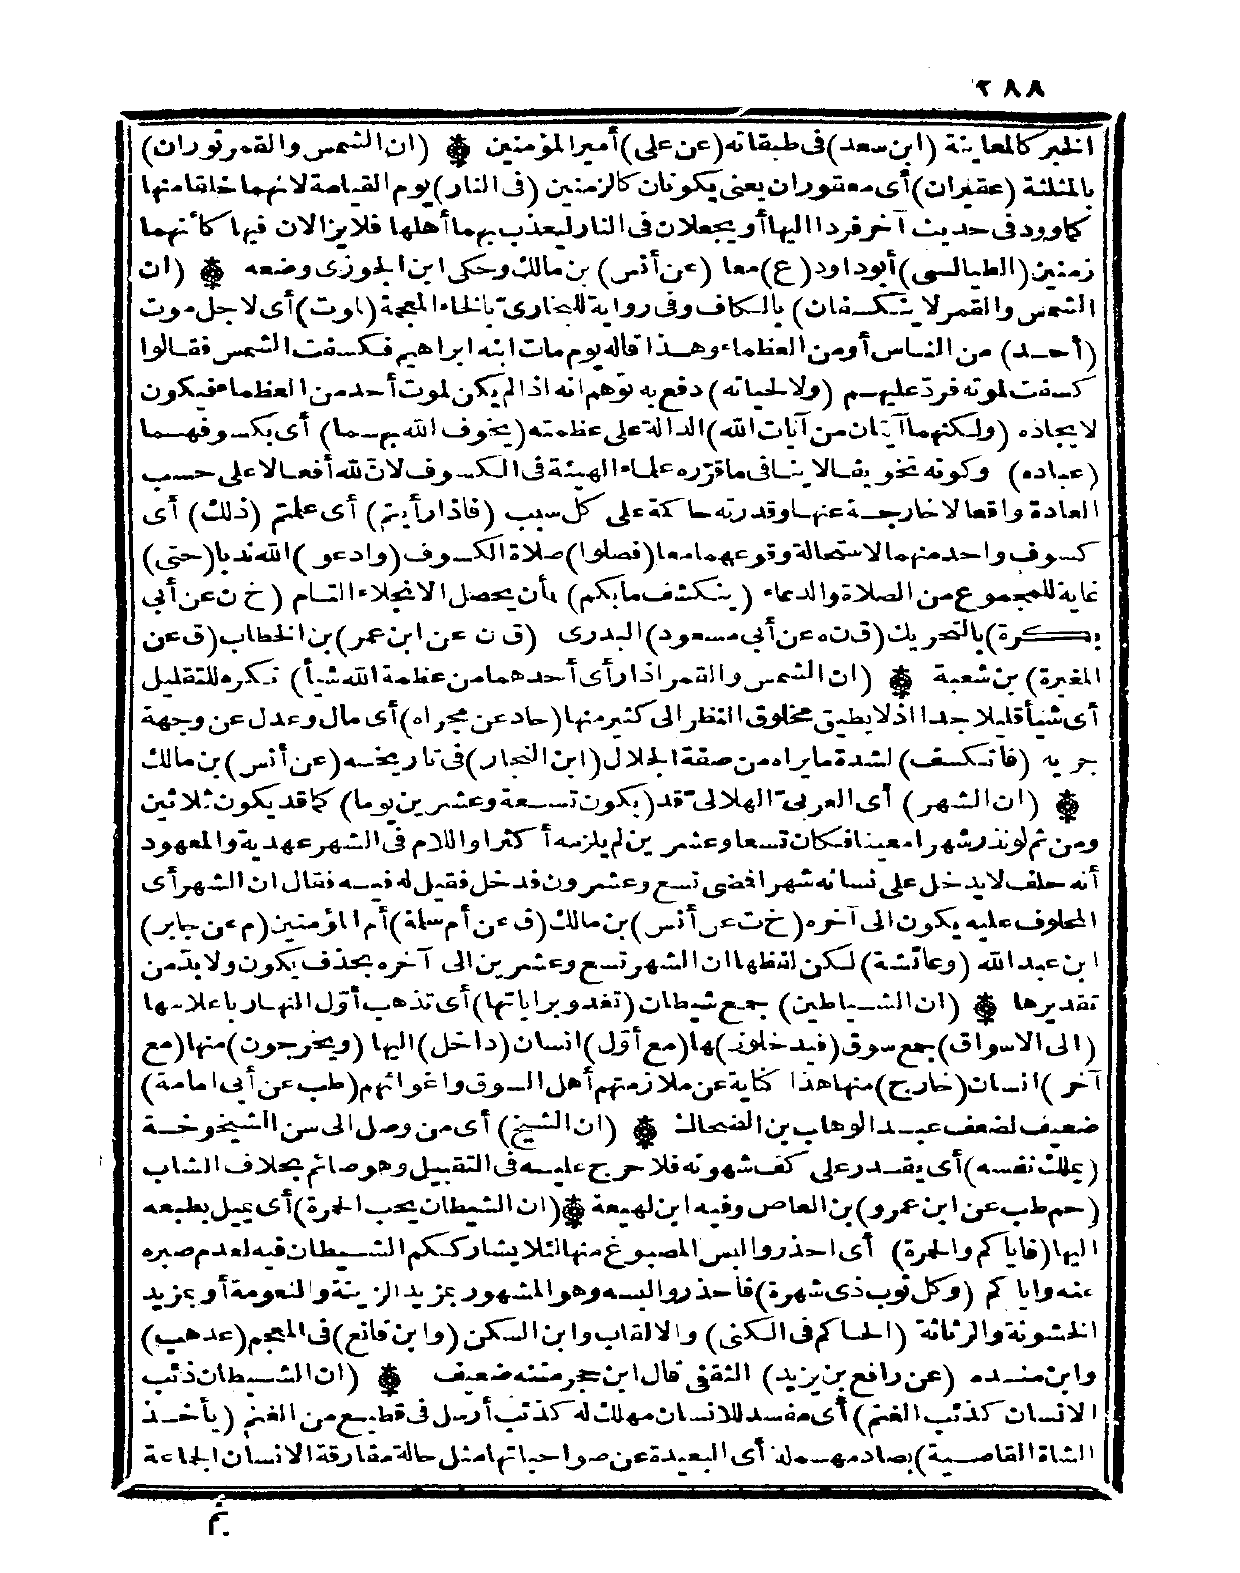 ٢٨٨
الخبر كالمعاينة (ابن سعد) فى طبقاته (عن على) أمير المؤمنين ۞ (ان الشمس والقمر ثوران)
بالمثلثة (عقيران) أى معقوران يعنى يكونان كالزمنين (فى النار) يوم القيامة لانهما خلقا منها
كما ورد فى حديث آخر فردا اليها أو يجعلان فى النار ليعذب بهما أهلها فلا يزالان فيها كأنهما
زمنين (الطيالسى) أبو داود (ع) معا (عن أنس) بن مالك وحكى ابن الجوزى وضعه ۞ (ان
الشمس والقمر لا ينكسفان) بالكاف وفى رواية للبخارىّ بالخاء المعجمة (لموت) أى لاجل موت
(أحد) من الناس أو من العظماء وهذا قاله يوم مات ابنه ابراهيم فكسفت الشمس فقالوا
كسفت لموته فردّ عليهم (ولا لحياته) دفع به توهم انه اذا لم يكن لموت أحد من العظماء فيكون
لايجاده (ولكنهما آيتان من آيات الله) الدالة على عظمته (يخوف الله بهما) أى بكسوفهما
(عباده) وكونه تخويفا لا ينافى ما قرّره علماء الهيئة فى الكسوف لانّ لله أفعالا على حسب
العادة وافعالا خارجة عنها وقدرته حاكمة على كل سبب (فاذا رأيتم) أى علمتم (ذلك) أى
كسوف واحد منهما لاستحالة وقوعهما معا (فصلوا) صلاة الكسوف (وادعو) الله ندبا (حتى)
غاية للمجموع من الصلاة والدعاء (ينكشف ما بكم) بأن يحصل الانجلاء التام (خ ن عن أبى
بكرة) بالتحريك (ق ن ه عن أبى مسعود) البدرى (ق ن عن ابن عمر) بن الخطاب (ق عن
المغيرة) بن شعبة ۞ (ان الشمس والقمر اذا رأى أحدهما من عظمة الله شيأ) نكره للتقليل
أى شيأ قليلا جدا اذ لا يطيق مخلوق النظر الى كثير منها (حاد عن مجراه) أى مال وعدل عن وجهة
جريه (فانكسف) لشدة ما يراه من صفة الجلال (ابن النجار) فى تاريخه (عن أنس) بن مالك
۞ (ان الشهر) أى العربىّ الهلالىّ قد (يكون تسعة وعشرين يوما) كما قد يكون ثلاثين
ومن ثم لو نذر شهرا معينا فكان تسعا وعشرين لم يلزمه أكثر واللام فى الشهر عهدية والمعهود
أنه حلف لا يدخل على نسائه شهرا فمضى تسع وعشرون فدخل فقيل له فيه فقال ان الشهر أى
المحلوف عليه يكون الى آخره (خ ت عن أنس) بن مالك (ق عن أم سلمة) أم المؤمنين (م عن جابر)
ابن عبد الله (وعائشة) لكن لفظها ان الشهر تسع وعشرين الى آخره بحذف يكون ولا بدّ من
تقديرها ۞ (ان الشياطين) جمع شيطان (تغدو براياتها) أى تذهب أوّل النهار باعلامها
(الى الاسواق) جمع سوق (فيدخلون) ها (مع أوّل) انسان (داخل) اليها (ويخرجون) منها (مع
آخر) انسان (خارج) منها هذا كناية عن ملازمتهم أهل السوق واغوائهم (طب عن أبى امامة)
ضعيف لضعف عبد الوهاب بن الضحاك ۞ (ان الشيخ) أى من وصل الى سن الشيخوخة
(يملك نفسه) أى يقدر على كف شهوته فلا حرج عليه فى التقبيل وهو صائم بخلاف الشاب
(حم طب عن ابن عمرو) بن العاص وفيه ابن لهيعة ۞ (ان الشيطان يحب الحمرة) أى يميل بطبعه
اليها (فاياكم والحمرة) أى احذروا لبس المصبوغ منها لئلا يشارككم الشيطان فيه لعدم صبره
عنه واياكم (وكل ثوب ذى شهرة) فاحذروا لبسه وهو المشهور بمزيد الزينة والنعومة أو بمزيد
الخشونة والرثاثة (الحاكم فى الكنى) والالقاب وابن السكن (وابن قانع) فى المعجم (عد هب)
وابن منده (عن رافع بن يزيد) الثقفى قال ابن حجر متنه ضعيف ۞ (ان الشيطان ذئب
الانسان كذئب الغنم) أى مفسد للانسان مهلك له كذئب أرسل فى قطيع من الغنم (يأخذ
الشاة القاصية) بصاد مهملة أى البعيدة عن صواحباتها مثل حالة مفارقة الانسان الجماعة